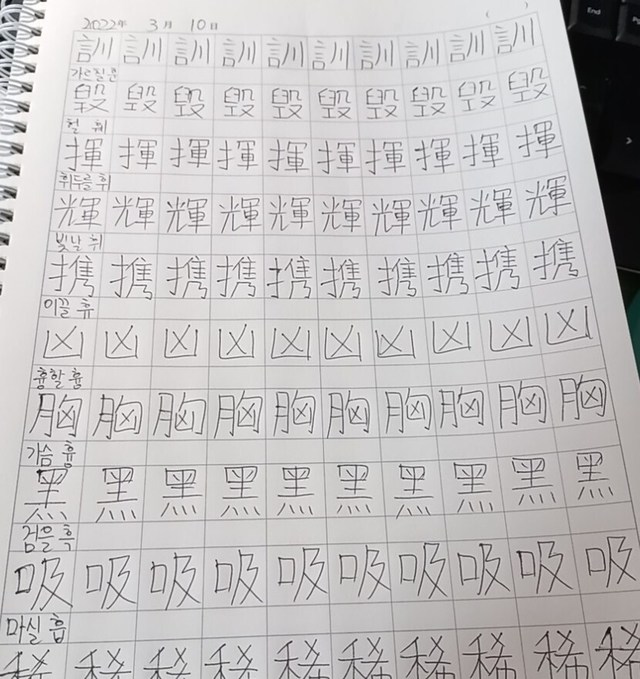 2022年 3月 10日 ( )
訓 訓 訓 訓 訓 訓 訓 訓 訓 訓
가르칠 훈
毁 毁 毁 毁 毁 毁 毁 毁 毁 毁
헐 훼
揮 揮 揮 揮 揮 揮 揮 揮 揮 揮
휘두를 휘
輝 輝 輝 輝 輝 輝 輝 輝 輝 輝
빛날 휘
携 携 携 携 携 携 携 携 携 携
이끌 휴
凶 凶 凶 凶 凶 凶 凶 凶 凶 凶
흉할 흉
胸 胸 胸 胸 胸 胸 胸 胸 胸 胸
가슴 흉
黑 黑 黑 黑 黑 黑 黑 黑 黑 黑
검을 흑
吸 吸 吸 吸 吸 吸 吸 吸 吸 吸
마실 흡
稀 稀 稀 稀 稀 稀 稀 稀 稀